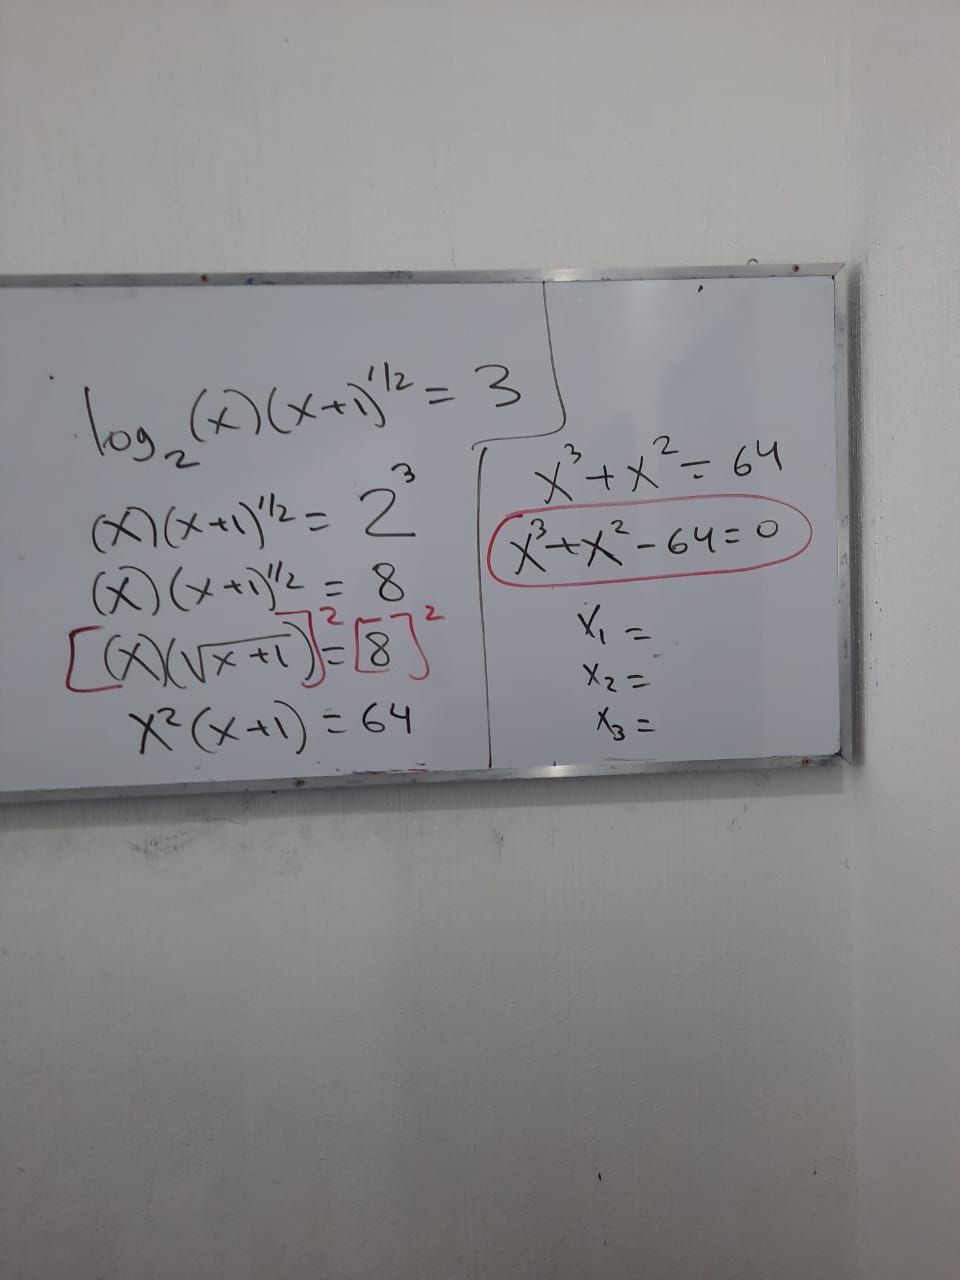 log₂(x)(x+1)^1/2 = 3
(x)(x+1)^1/2 = 2³
(x)(x+1)^1/2 = 8
[(x)(√x+1)]² = [8]²
x²(x+1) = 64
x³+x² = 64
x³+x²-64=0
x₁ =
x₂ =
x₃ =